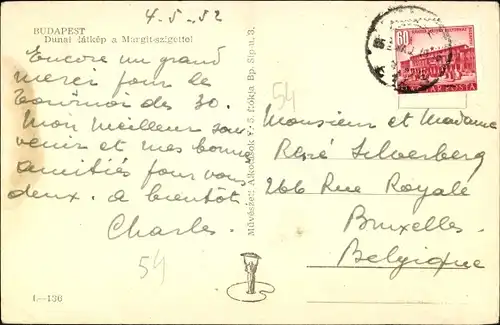 4-5-52
BUDAPEST
Dunai látkép a Margit-szigettel
Encore un grand
merci pour le
tournoi des 30.
Mon meilleur sou
venir et mes bonnes
amitiés pour vous
deux. à bientôt
Charles.
54
I.—136
Művészeti Alkotások V. 5. Rókja Bp. Síp-u. 3.
60
MAGYAR POSTA
54
Monsieur et Madame
René Silverberg
266 Rue Royale
Bruxelles.
Belgique